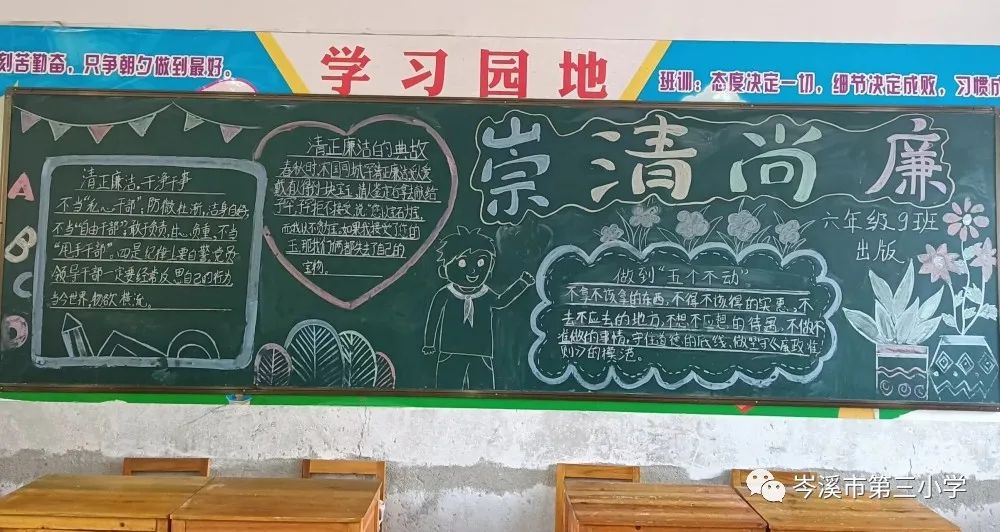 刻苦勤奋，只争朝夕做到最好。
学习园地
班训：态度决定一切，细节决定成败，习惯成
崇清尚廉
六年级9班
出版
A
B
C
D
清正廉洁，干净干事
防微杜渐，洁身自好
不当"自由干部"，敢于负责
不当
"甩手干部"。四是纪律上要自警，党员
领导干部一定要经常反思自己的行为
当今世界，物欲横流。
清正廉洁的典故
春秋时，宋国司城子罕清正廉洁，受人爱
戴。有人得到一块宝玉，请人鉴定后拿去献给
子罕，子罕拒不接受，说："您以宝石为宝，
而我以不贪为宝。如果我接受了你的
玉，那我们俩都失去了自己的
宝物。
做到"五个不动"
不拿不该拿的东西，不得不该得的实惠，不
去不应去的地方，不想不应想的待遇，不做不
准做的事情，守住道德的底线，做
则的模范。
岑溪市第三小学